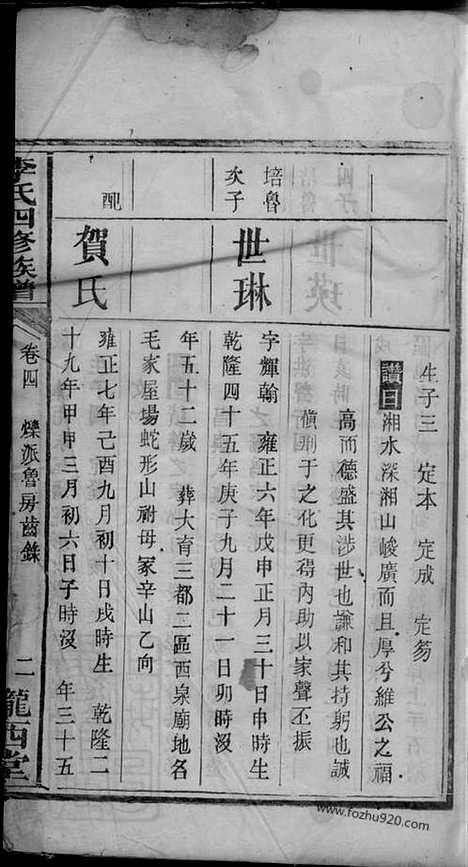 生子三 定本 定成 定芴
讚曰湘水深湘山峻廣而且厚兮維公之福
高而德盛其涉世也謙和其持躬也誠
慎刑于之化更得內助以家聲丕振
培魯
次子
世琳
字輝翰 雍正六年戊申正月三十日申時生
乾隆四十五年庚子九月二十一日卯時沒
年五十二歲 葬大育三都二區西泉廟地名
毛家屋場蛇形山祔母冢辛山乙向
配
賀氏
雍正七年己酉九月初十日戌時生 乾隆二
十九年甲申三月初六日子時沒 年三十五
李氏四修族譜
卷四 爍派魯房齒錄
二
隴西堂
www.fozhu920.com